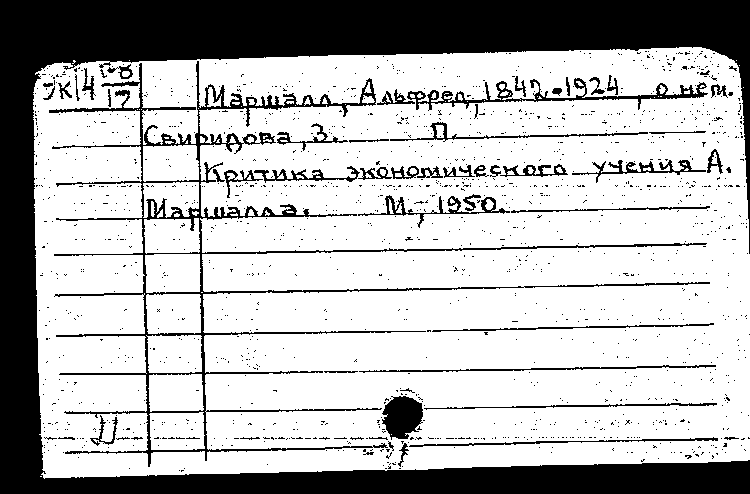 ЭК14 Г-8
17
Маршалл, Альфред, 1842-1924, о нем.
Свиридова, З. П.
Критика экономического учения А.
Маршалла. М., 1950.
Д